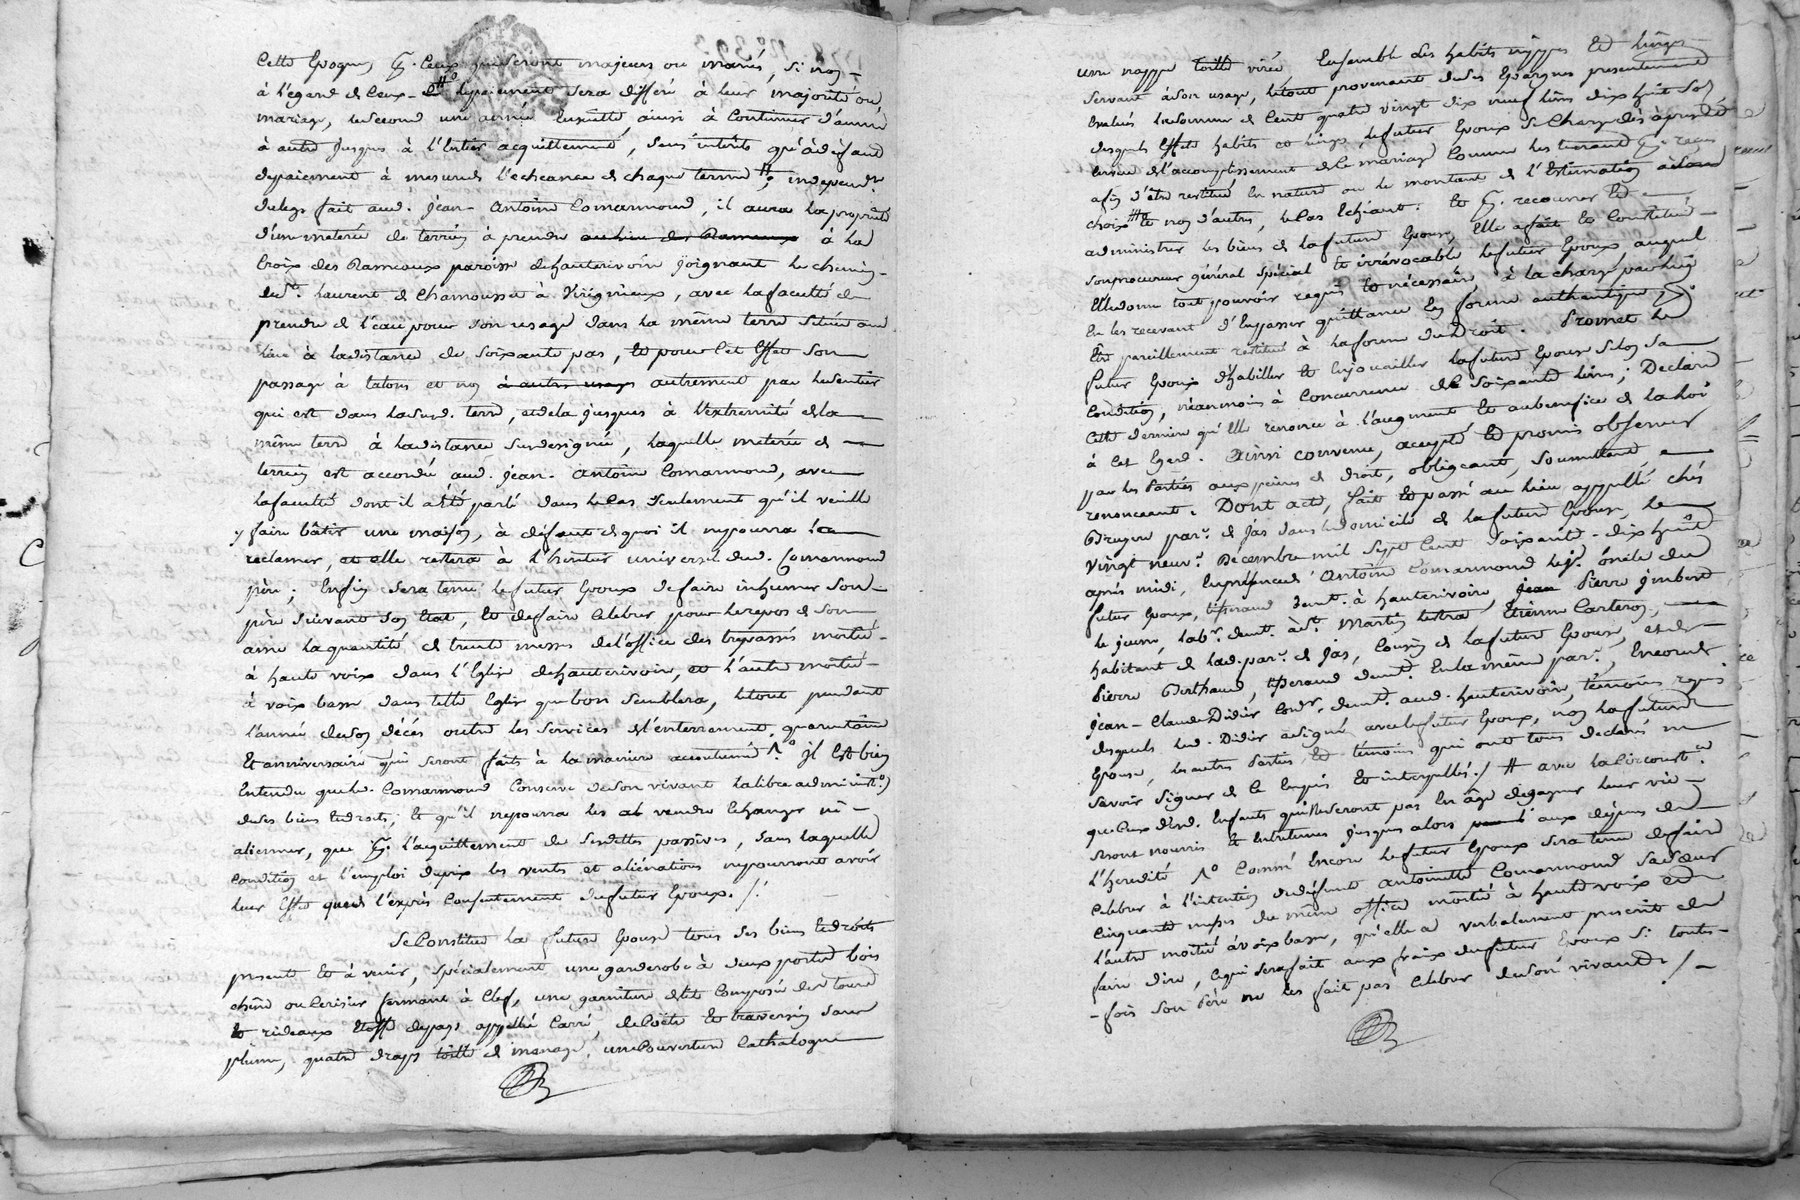 cette Epoque, pr. ceux qui seront majeurs ou mariés, si non
à l'égard de ceux - # le payement sera differé à leur majorité ou
mariage, le second une année Ensuitte ainsi à Continuer d'année
à autre jusques à l'Entier acquittement, sans interets qu'à deffaut
depaiement à mesure de l'echeance de chaque terme #; independt.
du legs fait aud. jean-Antoine Comarmond, il aura la propriété
d'une meterée de terrein à prendre au lieu des Rameaux à la
Croix des Rameaux paroisse dehauterivoire joignant le chemin
de St. Laurent de Chamousset à Virignieux, avec la faculté de
prendre de l'eau pour son usage dans la même terre située aud.
lieu à la distance de soixante pas, et pour cet Effet son
passage à talons et non à autre usage autrement par le sentier
qui est dans lasusd. terre, et dela jusques à l'extremité de la
même terre à la distance susdesignée, laquelle meterée de
terrein est accordée aud. jean-Antoine Comarmond, avec
lafaculté dont il a été parlé dans le cas seulement qu'il veuille
y faire bâtir une maison, à défaut de quoi il ne pourra la
reclamer, et elle restera à l'heritier universel dud. Comarmond
père; Enfin sera tenu le futur Epoux de faire inhumer son
père suivant son Etat, et defaire celebrer pour le repos de son
ame la quantité de trente messes de l'office des trepassés moitié
à haute voix dans l'Eglise dehauterivoire, et l'autre moitié
à voix basse dans telle Eglise que bon semblera, le tout pendant
l'année deson décés outre les services d'enterrement, quarantaine
Et anniversaire qui seront faits à la maniere accoutumée 1.º Il Est bien
Entendu que led. Comarmond Conserve deson vivant la libre administ.º
deses biens Et droits; Et qu'il nepourra les ab vendre Echanger ni
aliener, que pr. l'acquittement de ses dettes passives, sans laquelle
Condition et l'emploi du prix les ventes et alienations nepourront avoir
leur Effet que de l'exprès Consentement du futur Epoux. /.
Se Constitue la future Epouse tous ses biens Et droits
present Et à venir, spécialement une garderobe à deux portes bois
chêne ou Cerisier fermant à Clef, une garniture de lit Composée de tour
Et rideaux Etoffe du pays appellée Carré, de Coëte Et traversin sans
plume, quatre draps toille de menage, une Couverture Cathalogne
une nappe toille virée Ensemble des habits nippes Et linges
Servant àson usage, letout provenant deses Epargnes presentement
Evalués la somme de Cent quatre vingt dix neuf livres dix huit sols
desquels Effets habits et linges, le futur Epoux se Charge dès à present
Ensuite de l'accomplissement de le mariage Comme les tenant pr. reçus
afin d'être restitué En nature ou le montant de l'Estimation à son
choix # Et non d'autres, le Cas Echéant. Et pr. recouvrer Et
administrer les biens de la future Epouse, Elle a fait Et Constitué
sonprocureur général spécial Et irrévocable lefutur Epoux auquel
Elle donne tout pouvoir requis Et nécessaire à la charge par lui
En les recevant d'En passer quittance En forme authentique pr.
Être pareillement restitué à la forme du Droit. Promet le
futur Epoux d'habiller Et Enjouailler lafuture Epouse selon sa
Condition, néanmoins à Concurrence de soixante livres; Declare
Cette derniere qu'Elle renonce à l'augment Et au benefice de la loi
à cet Egard. Ainsi convenu, accepté Et promis observer
par les Parties aux peines de droit, obligeant, soumettant
renonceant. Dont acte, fait Et passé au lieu appellé chés
Bruyere par. de Jas dans le domicile de la future Epouse, le
Vingt neuf. Décembre mil Sept Cent Soixante-dix huit
après midi, En presence d'Antoine Comarmond
futur Epoux, demt. à hauterivoire, jean Pierre jmbert
le jeune, labr. demt. à St. Martin lestra Etienne Carteron,
habitant de lad. par. de Jas, Cousin de la future Epouse, et de
Pierre Berthaud, demt. En la même par., Encore de
jean-Claude Didier Cordr. demt. aud. hauterivoire, témoins requis
desquels led. Didier asigné avec le futur Epoux, non lafuture
Epouse, les autres Parties Et témoins qui ont tous declaré ne
Savoir signer de ce Enquis Et interpellés. / # avec la Circonst.ce
que Ceux desd. Enfants qui neseront pas En âge degagner leur vie
seront nourris Et Entretenus jusques alors aux dépens de
l'heredité 1.º Comme Encore lefutur Epoux sera tenu defaire
Celebrer à l'intention de défunte Antoinette Comarmond sasœur
Cinquante messes du même office moitié à haute voix et
l'autre moitié à voix basse, qu'elle a verbalement prescrit de
faire dire, Cequi sera fait aux fraix dufutur Epoux si toutes-
-fois son Père ne les fait pas Celebrer deson vivant. / -